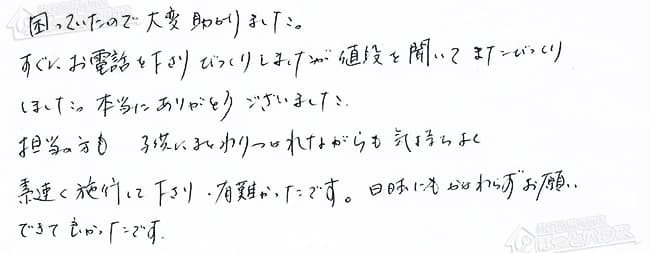 困っていたので大変助かりました。
すぐにお電話を下さりびっくりしましたが値段を聞いてまたびっくり
しました。本当にありがとうございました。
担当の方も 子供にまとわりつかれながらも 気持ちよく
素速く施行して下さり、有難かったです。日時にもかかわらずお願い
できて良かったです。